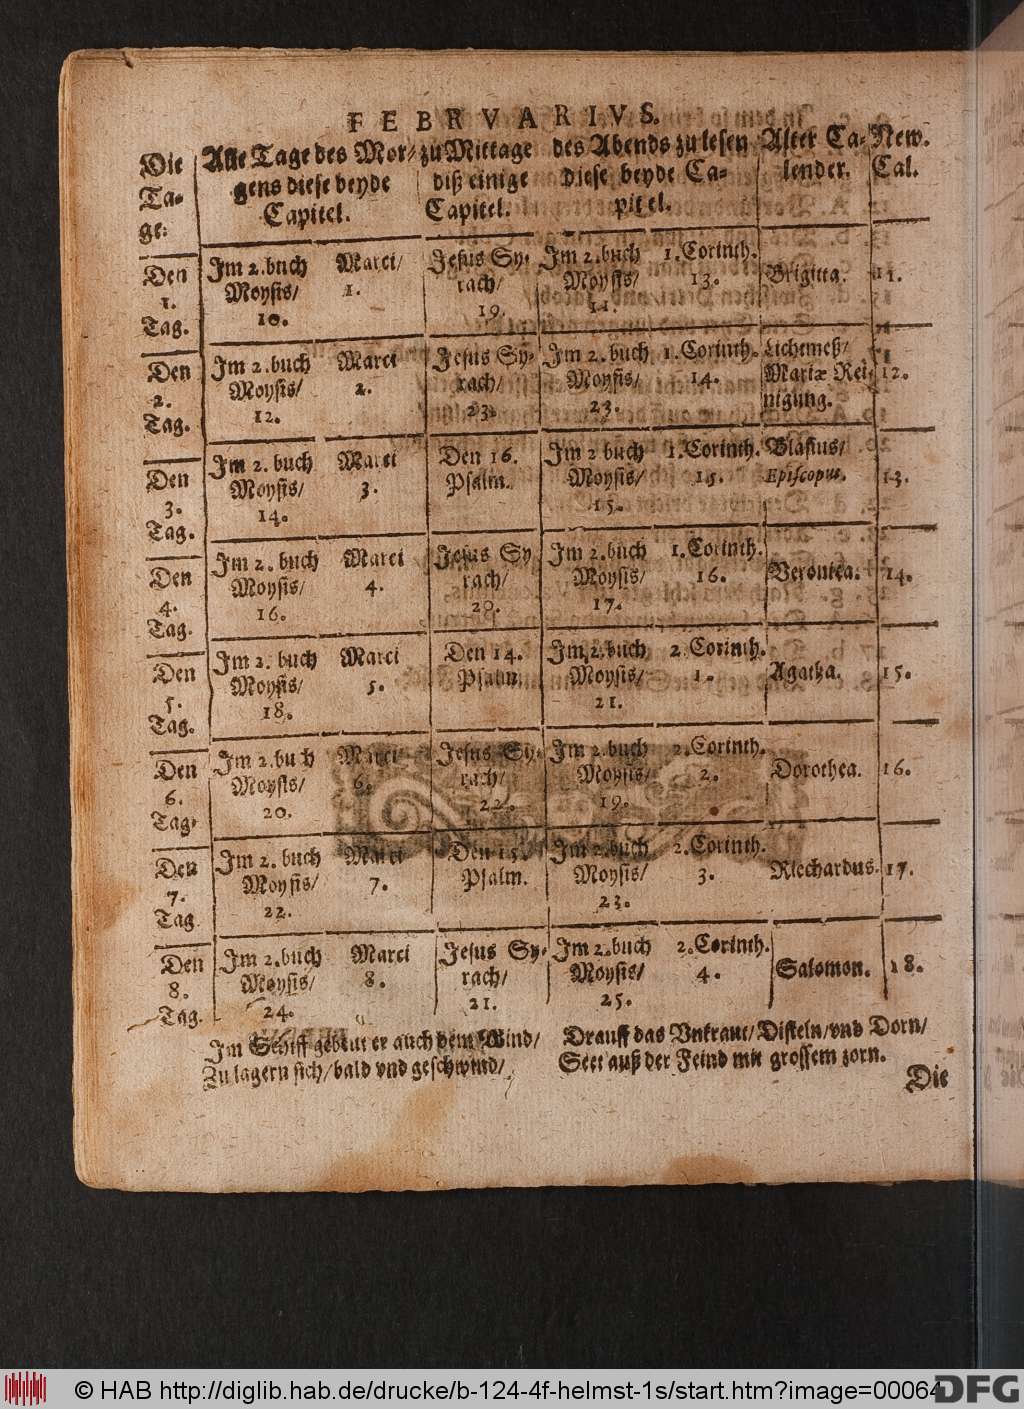 FEBRVARIVS.
Die Alle Tage des Mor- zu Mittage des Abends zu lesen Alter Ca- New.
Ta- gens diese beyde diß einige diese beyde Ca- lender. Cal.
ge: Capitel. Capitel. pitel.
Den Im 2. buch Marci/ Jesus Sy- Im 2. buch 1. Corinth. Brigitta. 11.
1. Moysis/ 1. rach/ Moysis/ 13.
Tag. 10. 19. 11.
Den Im 2. buch Marci Jesus Sy- Im 2. buch 1. Corinth. Lichtmeß/
2. Moysis/ 2. rach/ Moysis/ 14. Mariæ Rei- 12.
Tag. 12. 23. 23. nigung.
Den Im 2. buch Marci Den 16. Im 2 buch 1. Corinth. Blasius/
3. Moysis/ 3. Psalm. Moysis/ 15. Episcopus. 13.
Tag. 14. 15.
Den Im 2. buch Marci Jesus Sy Im 2. buch 1. Corinth. Veronica. 14.
4. Moysis/ 4. rach/ Moysis/ 16.
Tag. 16. 20. 17.
Den Im 2. buch Marci Den 14. Im 2. buch 2. Corinth. Agatha. 15.
5. Moysis/ 5. Psalm. Moysis/ 1.
Tag. 18. 21.
Den Im 2. buch Marci Jesus Sy- Im 2. buch 2. Corinth. Dorothea. 16.
6. Moysis/ 6. rach/ Moysis/ 2.
Tag. 20. 22. 19.
Den Im 2. buch Marci Den 15. Im 2. buch 2. Corinth. Riechardus. 17.
7. Moysis/ 7. Psalm. Moysis/ 3.
Tag 22. 23.
Den Im 2. buch Marci Jesus Sy- Im 2. buch 2. Corinth. Salomon. 18.
8. Moysis/ 8. rach/ Moysis/ 4.
Tag. 24. 21. 25.
Im Schiff gebeut er auch dem Wind/
Zu lagern sich/ bald vnd geschwind/
Drauff das Vnkraut/ Disteln/ vnd Dorn/
Seet auß der Feind mit grossem zorn.
Die
© HAB http://diglib.hab.de/drucke/b-124-4f-helmst-1s/start.htm?image=00064
DFG